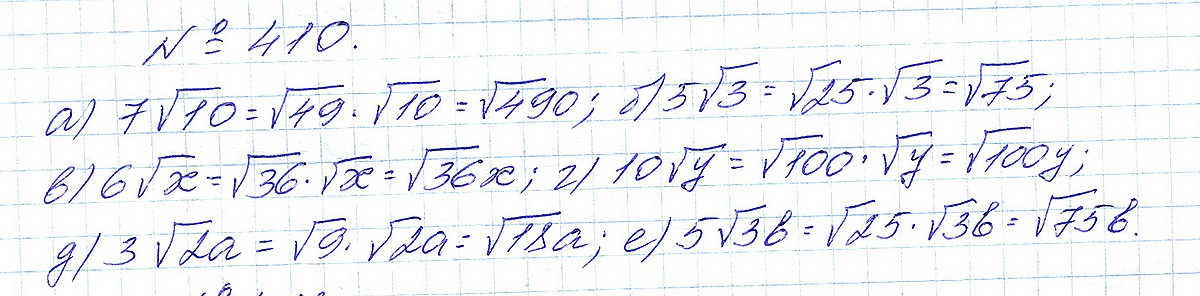 № 410.
а) 7√10 = √49·√10 = √490; б) 5√3 = √25·√3 = √75;
в) 6√x = √36·√x = √36x; г) 10√y = √100·√y = √100y;
д) 3√2a = √9·√2a = √18a; е) 5√3b = √25·√3b = √75b.